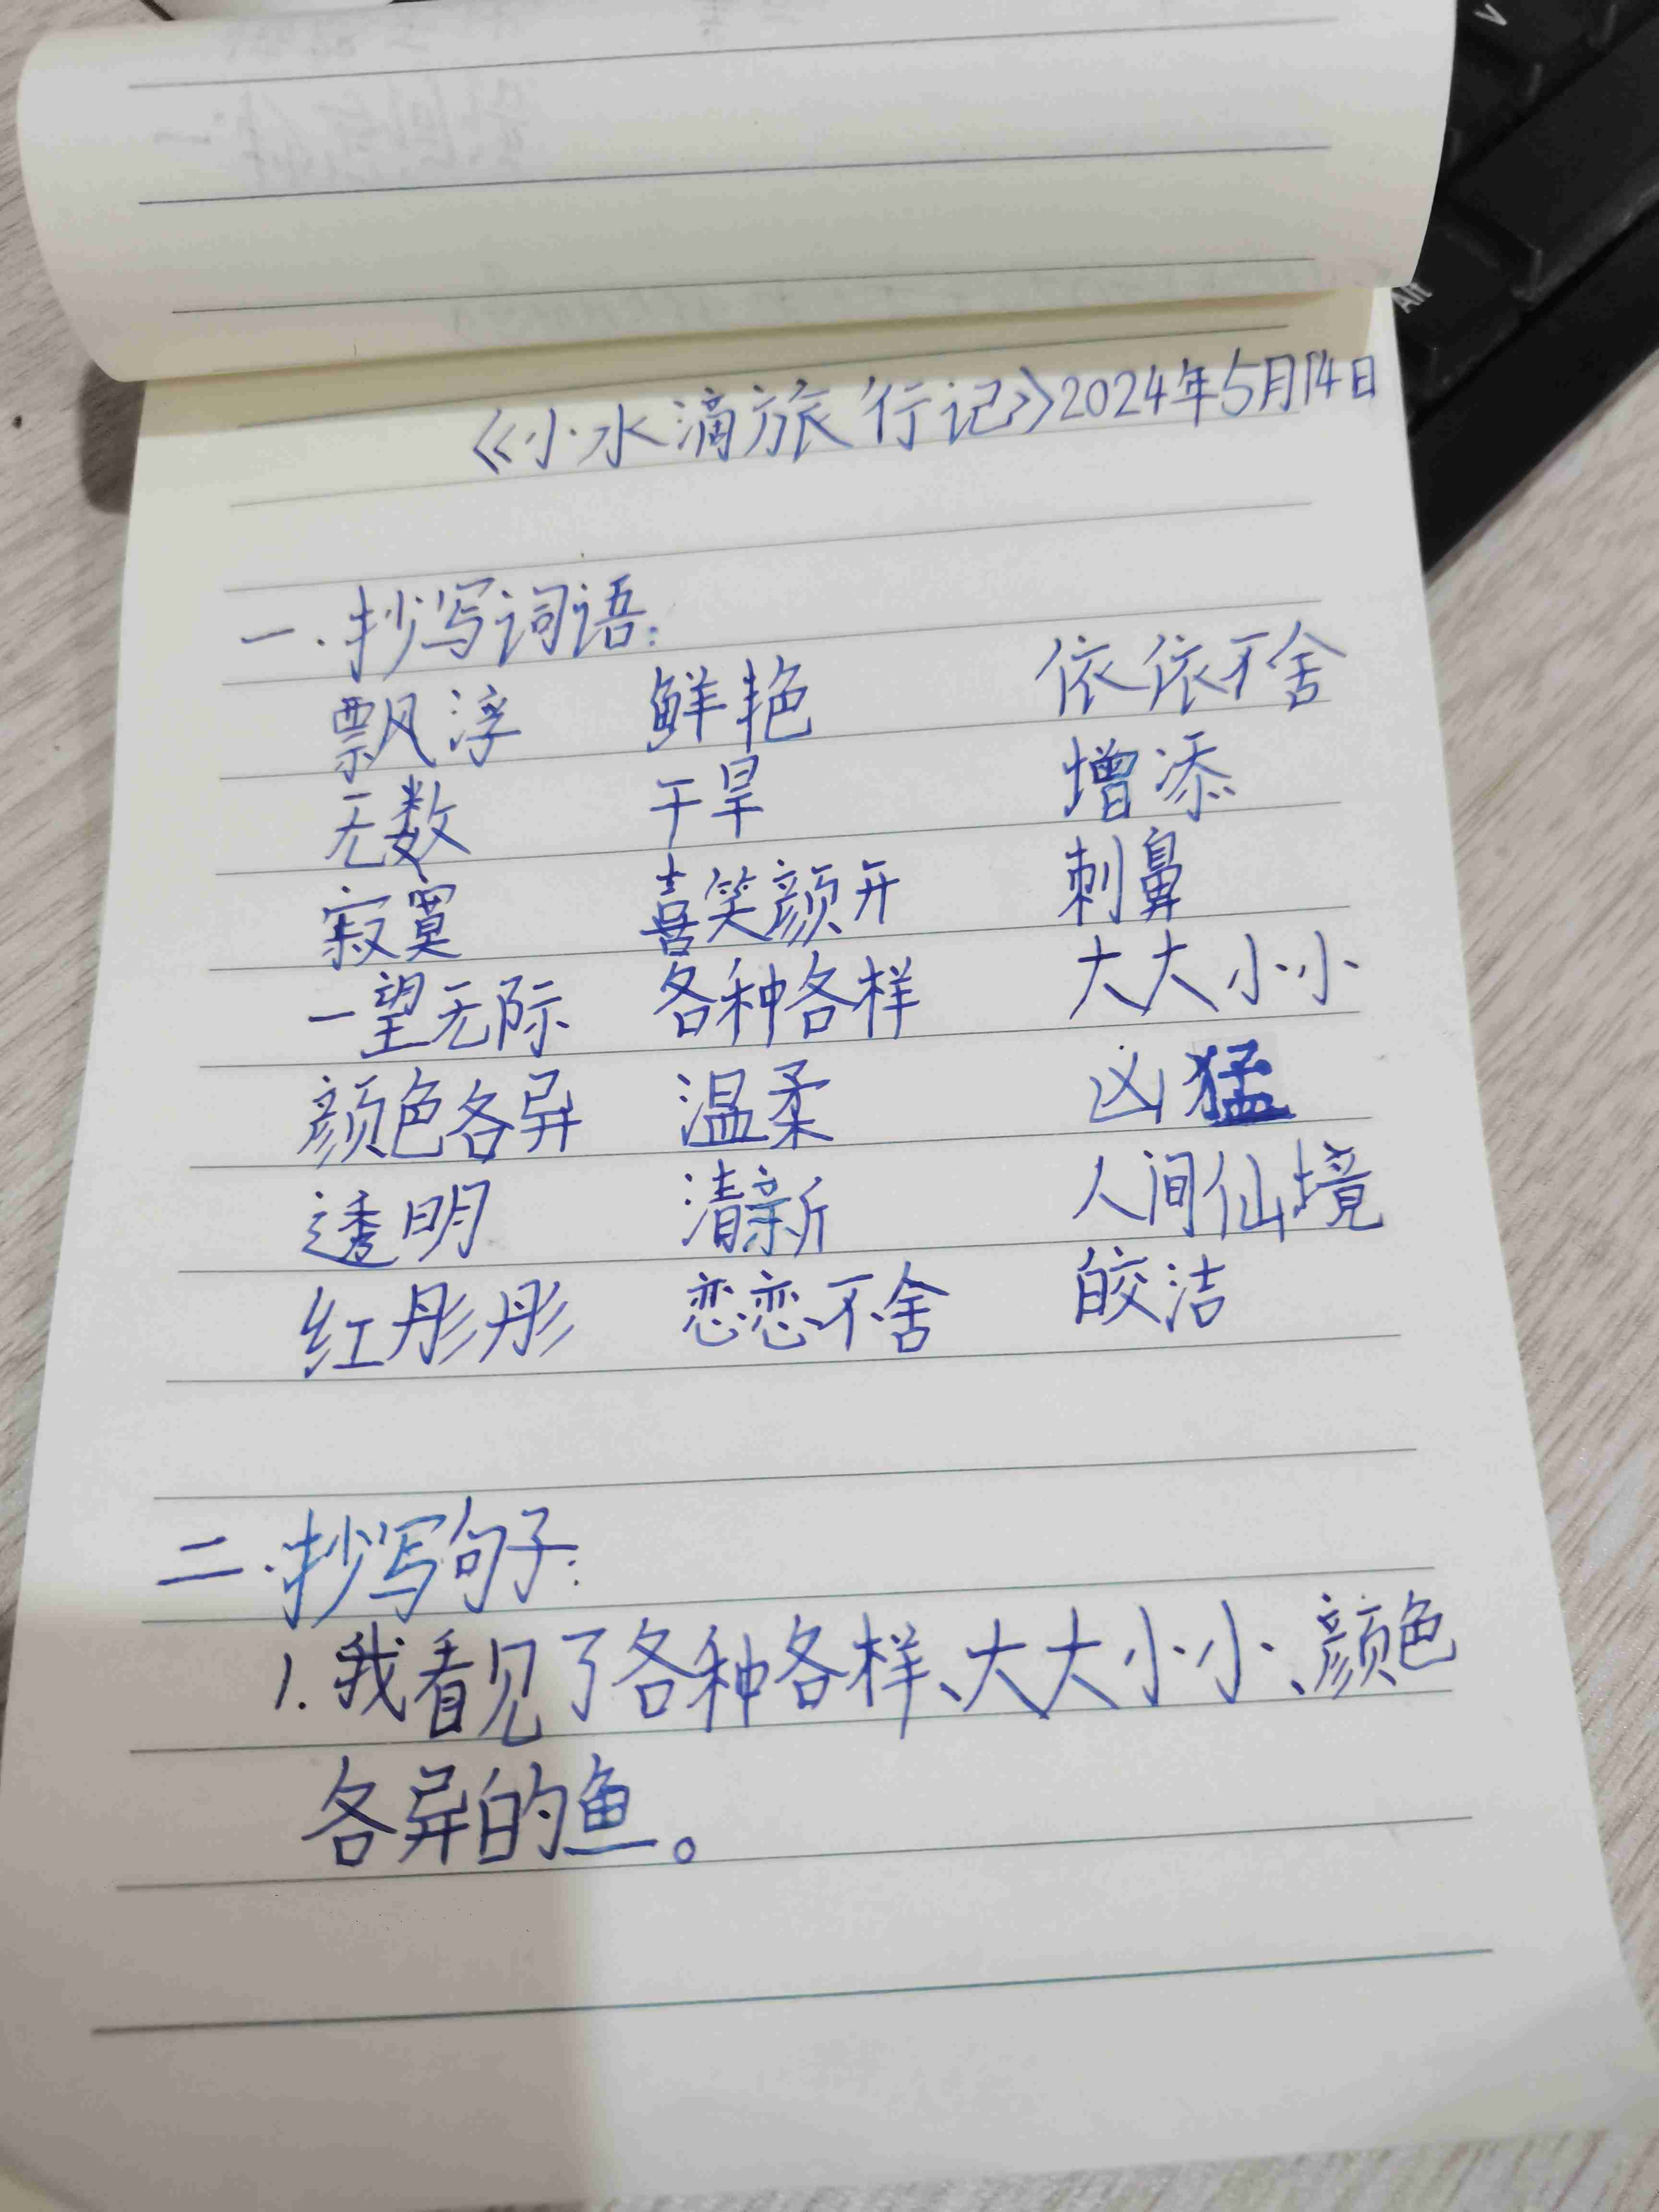 《小水滴旅行记》2024年5月14日
一.抄写词语:
飘浮 鲜艳 依依不舍
无数 干旱 增添
寂寞 喜笑颜开 刺鼻
一望无际 各种各样 大大小小
颜色各异 温柔 凶猛
透明 清新 人间仙境
红彤彤 恋恋不舍 皎洁
二.抄写句子:
1.我看见了各种各样、大大小小、颜色
各异的鱼。
Alt
V